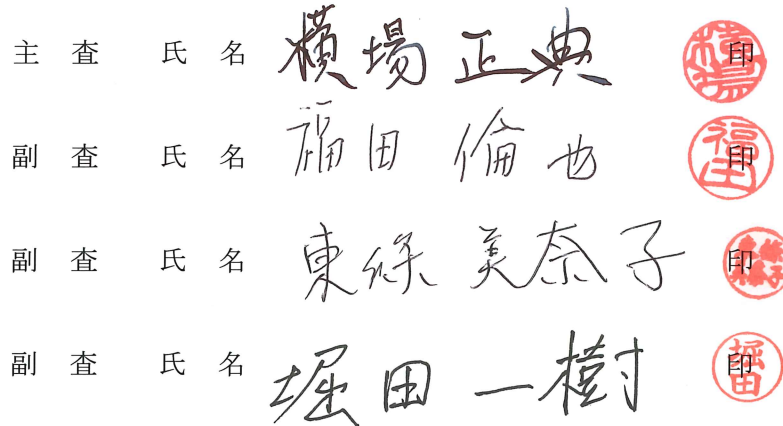 主査 氏名 横場正典 印
副査 氏名 福田倫也 印
副査 氏名 東條美奈子 印
副査 氏名 堀田一樹 印